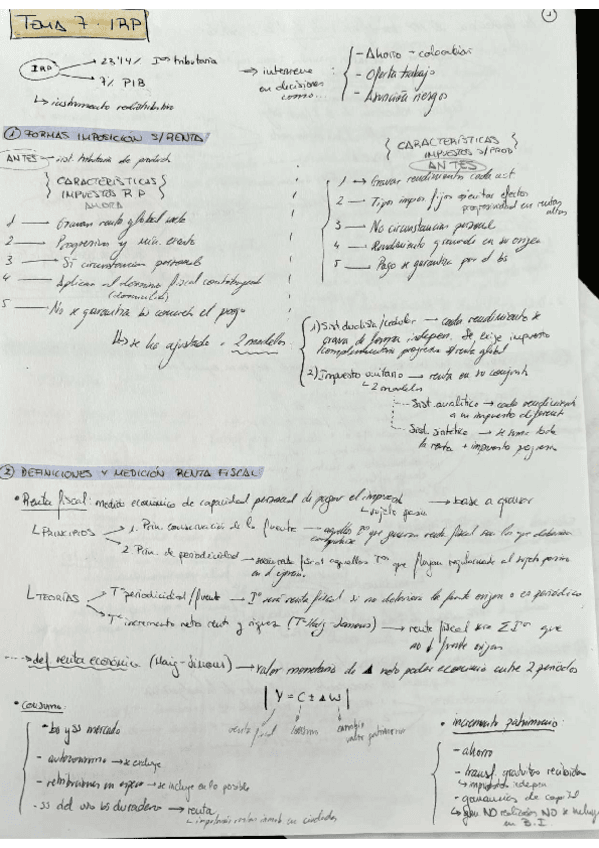 TEMA 7. IRP
1
IRP
23'14% Iºˢ tributaria
7% PIB
↳ instrumento redistributivo
→ interviene en decisiones como...
- Ahorro
- Oferta trabajo
- Asunción riesgos
① FORMAS IMPOSICIÓN S/RENTA
ANTES → sist. tributario de product.
CARACTERÍSTICAS IMPUESTOS R P
AHORA
1 — Gravan renta global neta
2 — Progresivos y mín. exento
3 — Sí circunstancias personales
4 — Aplican al dominio fiscal contribuyente (domicilio)
5 — No se garantiza bs concreto el pago
↳ se ha ajustado a 2 modelos
CARACTERÍSTICAS IMPUESTOS S/PROD
ANTES
1 → Gravar rendimientos cada act.
2 — Tipos impos. fijos efectos progresividad en rentas altas
3 — No circunstancias personal
4 — Rendimiento gravado en su origen
5 — Pago se garantiza por el bs
1) Sist dualista/cedular → cada rendimiento se grava de forma independ. Se exige impuesto complementario progresivo s/renta global
2) Impuesto unitario → renta en su conjunto
↳ 2 modelos
Sist. analítico → cada rendimiento a un impuesto diferent
Sist. sintético → se suma toda la renta + impuesto progresivo
② DEFINICIONES Y MEDICIÓN RENTA FISCAL
• Renta fiscal: medida económica de capacidad personal de pagar el impuesto → base a gravar
↳ sujeto pasivo
↳ PRINCIPIOS
1. Prin. conservación de la fuente
2. Prin. de periodicidad → renta fiscal aquellos Iºˢ que fluyan regularmente al sujeto pasivo
↳ TEORÍAS
Tª periodicidad/fuente → Iº será renta fiscal si no deteriora la fuente origen o es periódico
Tª incremento neto renta y riqueza (Tª Haig-Simons) → renta fiscal Σ Iºˢ que no ↓ fuente origen
def. renta económica (Haig-Simons) → valor monetario de ▲ neto poder económico entre 2 periodos
| Y = C ± ▲W |
renta fiscal
consumo
cambio valor patrimonio
• consumo:
- bs y ss mercado
- autoconsumo → se excluye
- retribuciones en especie → se incluye en lo posible
- ss del uso bs duraderos → renta
• incremento patrimonio:
- ahorro
- transf. gratuitas recibidas
- ganancias de capital
NO realizadas NO se incluyen en B.I